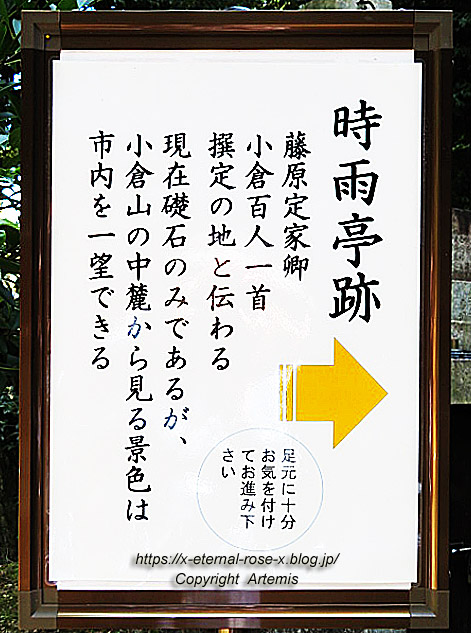 時雨亭跡
藤原定家卿
小倉百人一首
撰定の地と伝わる
現在礎石のみであるが、
小倉山の中麓から見る景色は
市内を一望できる
足元に十分
お気を付け
てお進み下
さい
https://x-eternal-rose-x.blog.jp/
Copyright Artemis